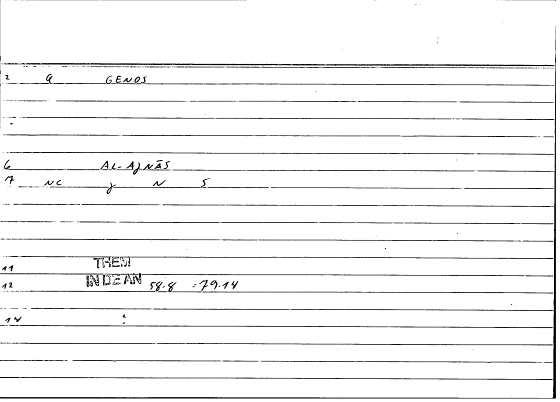 2 Q GENOS
6 AL-AJNĀS
7 NC J N S
11 THEM
12 IN DE AN 58.8 :79.14
14 :